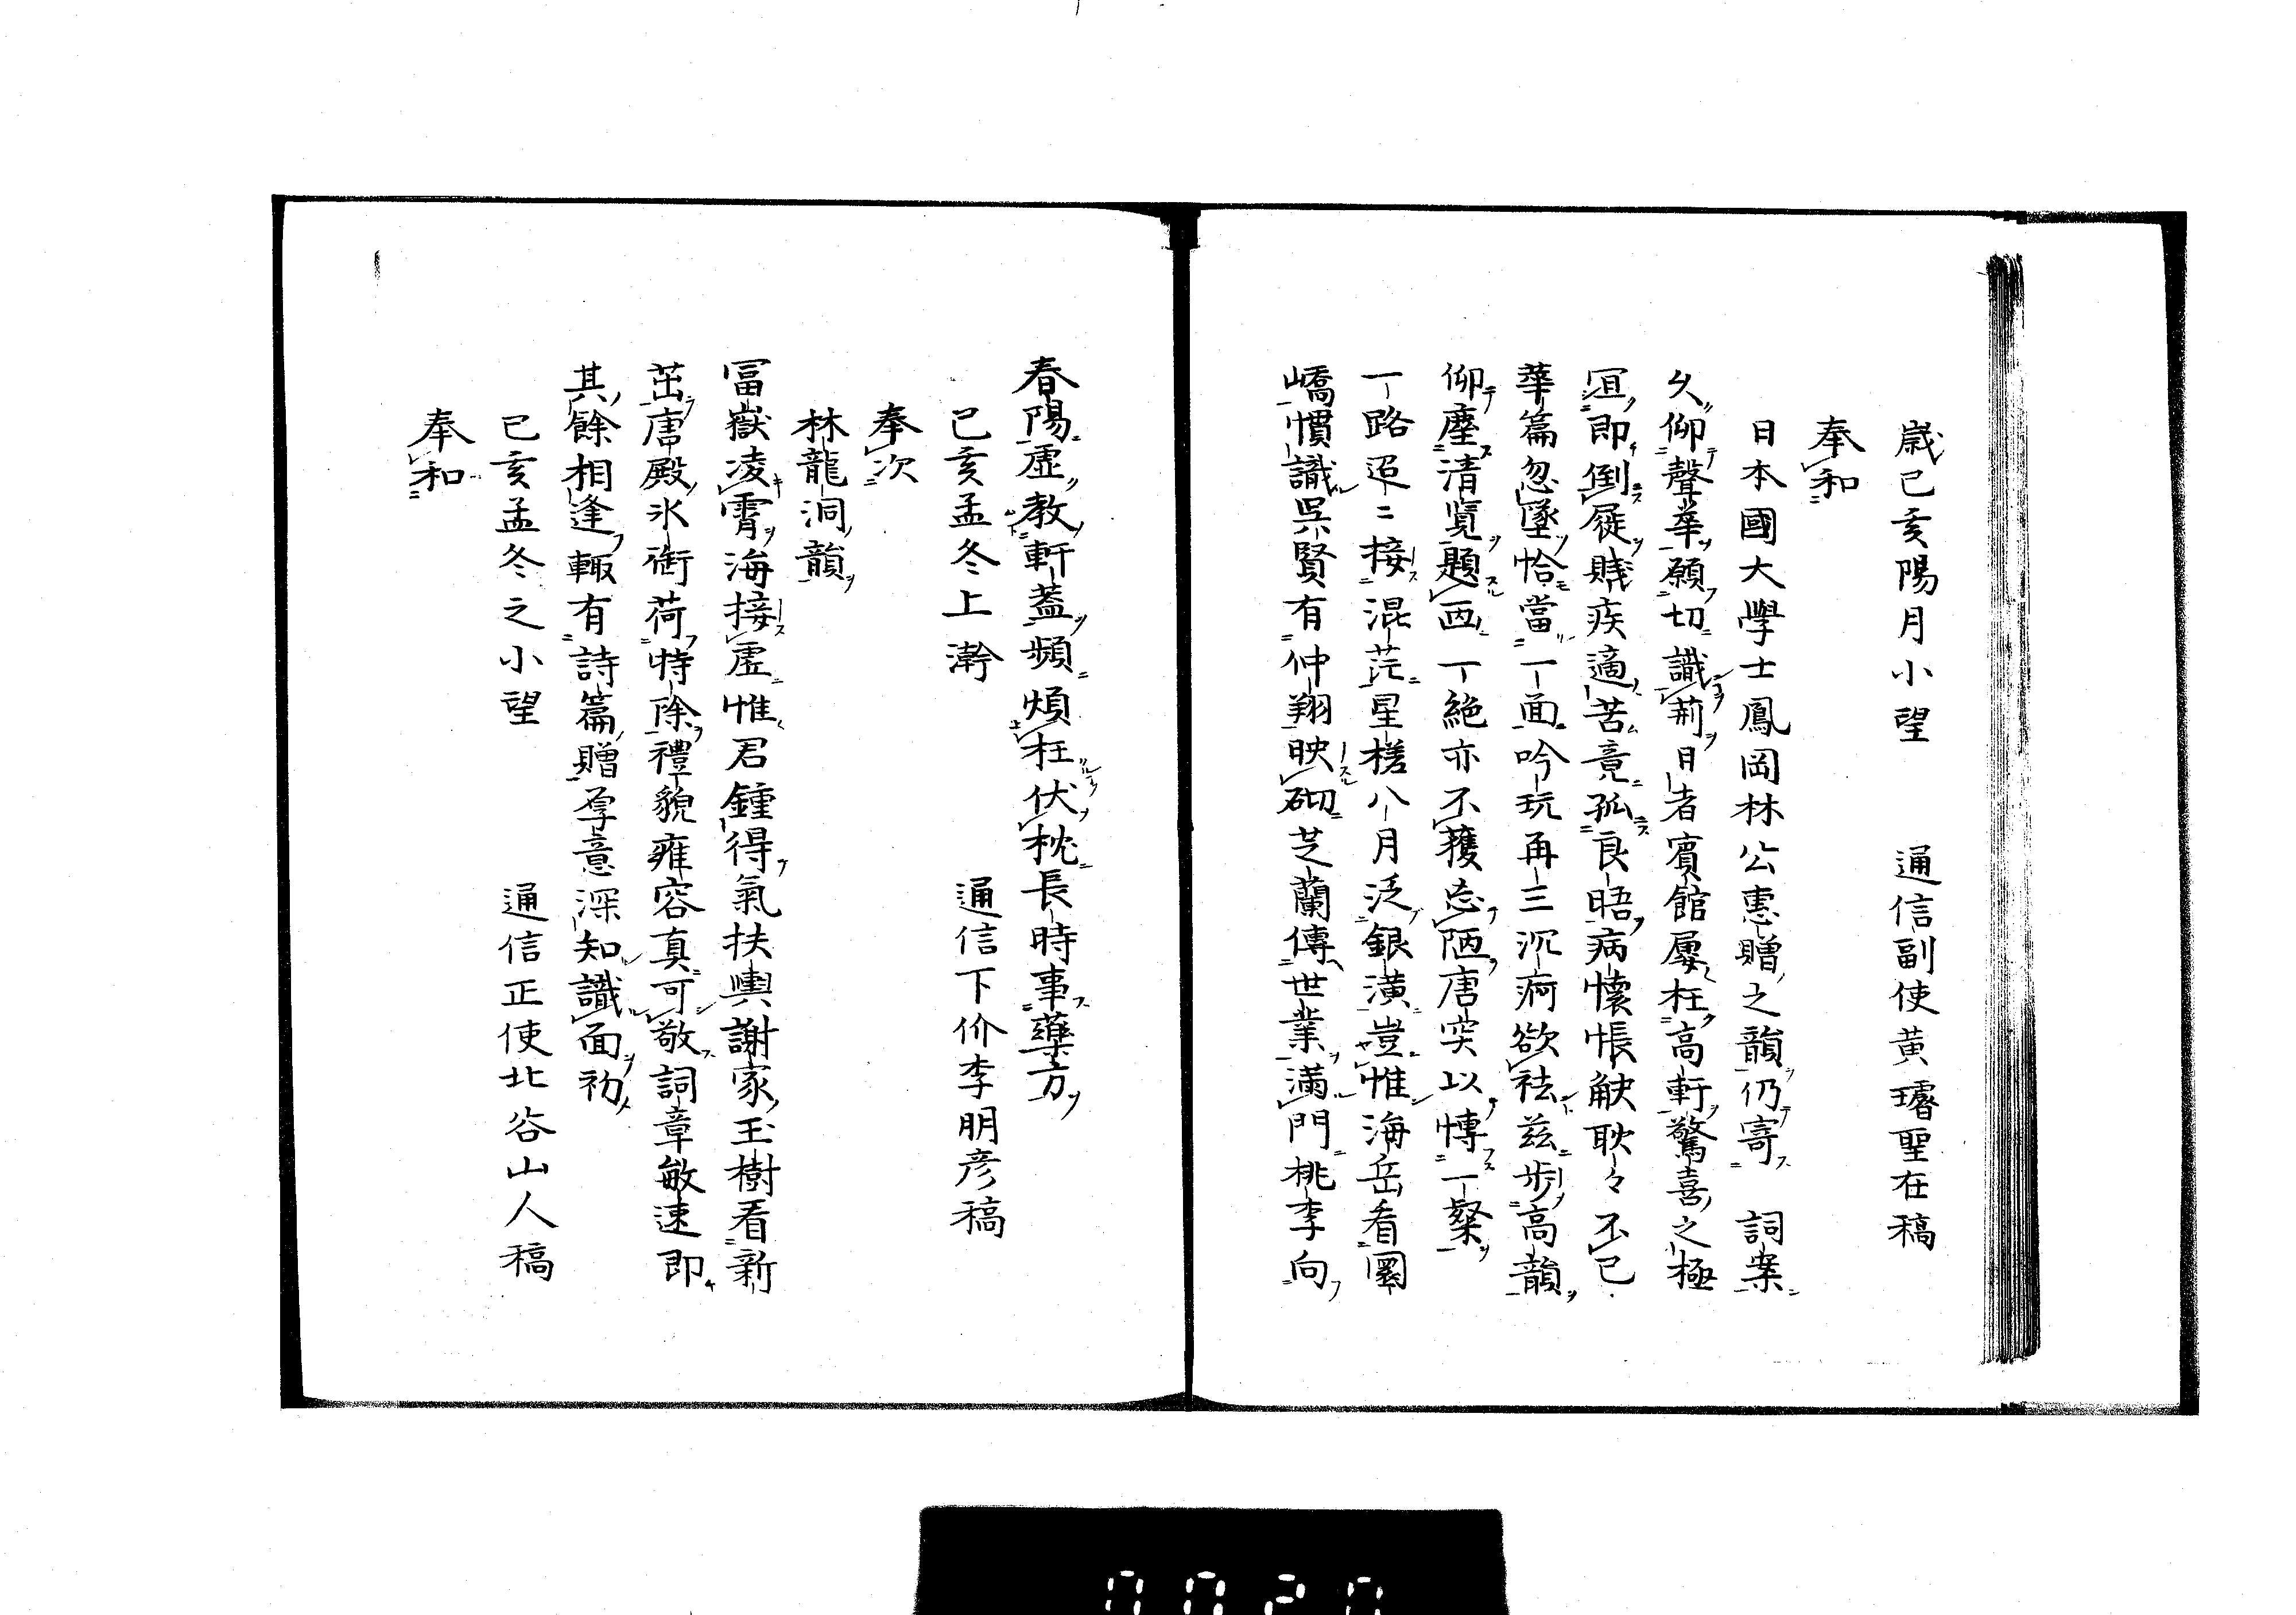 歳己亥陽月小望　　通信副使黄璿聖在稿
奉和
日本國大學士鳳岡林公惠贈之韻仍寄　詞案
久仰聲華願切識荊日者賓館屢枉高軒驚喜之極
冝即倒屣賤疾適苦竟孤良晤病懷悵觖耿々不已
華篇忽墜恰當一面吟玩再三沉痾欲祛茲步高韻
仰塵清覧題西一絶亦不獲忘陋唐突以愽一粲
一路迢ミ接混茫星槎八月泛銀潢豈惟海岳看圖
嶠慣識吳賢有仲翔映砌芝蘭傳世業滿門桃李向
春陽虛教軒蓋頻煩枉伏枕長時事藥方
己亥孟冬上澣　　通信下价李明彦稿
奉次
林龍洞韻
冨嶽凌霄海接虛惟君鍾得氣扶輿謝家玉樹看新
茁唐殿氷銜荷特除禮貌雍容真可敬詞章敏速即
其餘相逢輙有詩篇贈厚意深知識面初
己亥孟冬之小望　　通信正使北谷山人稿
奉和
0020